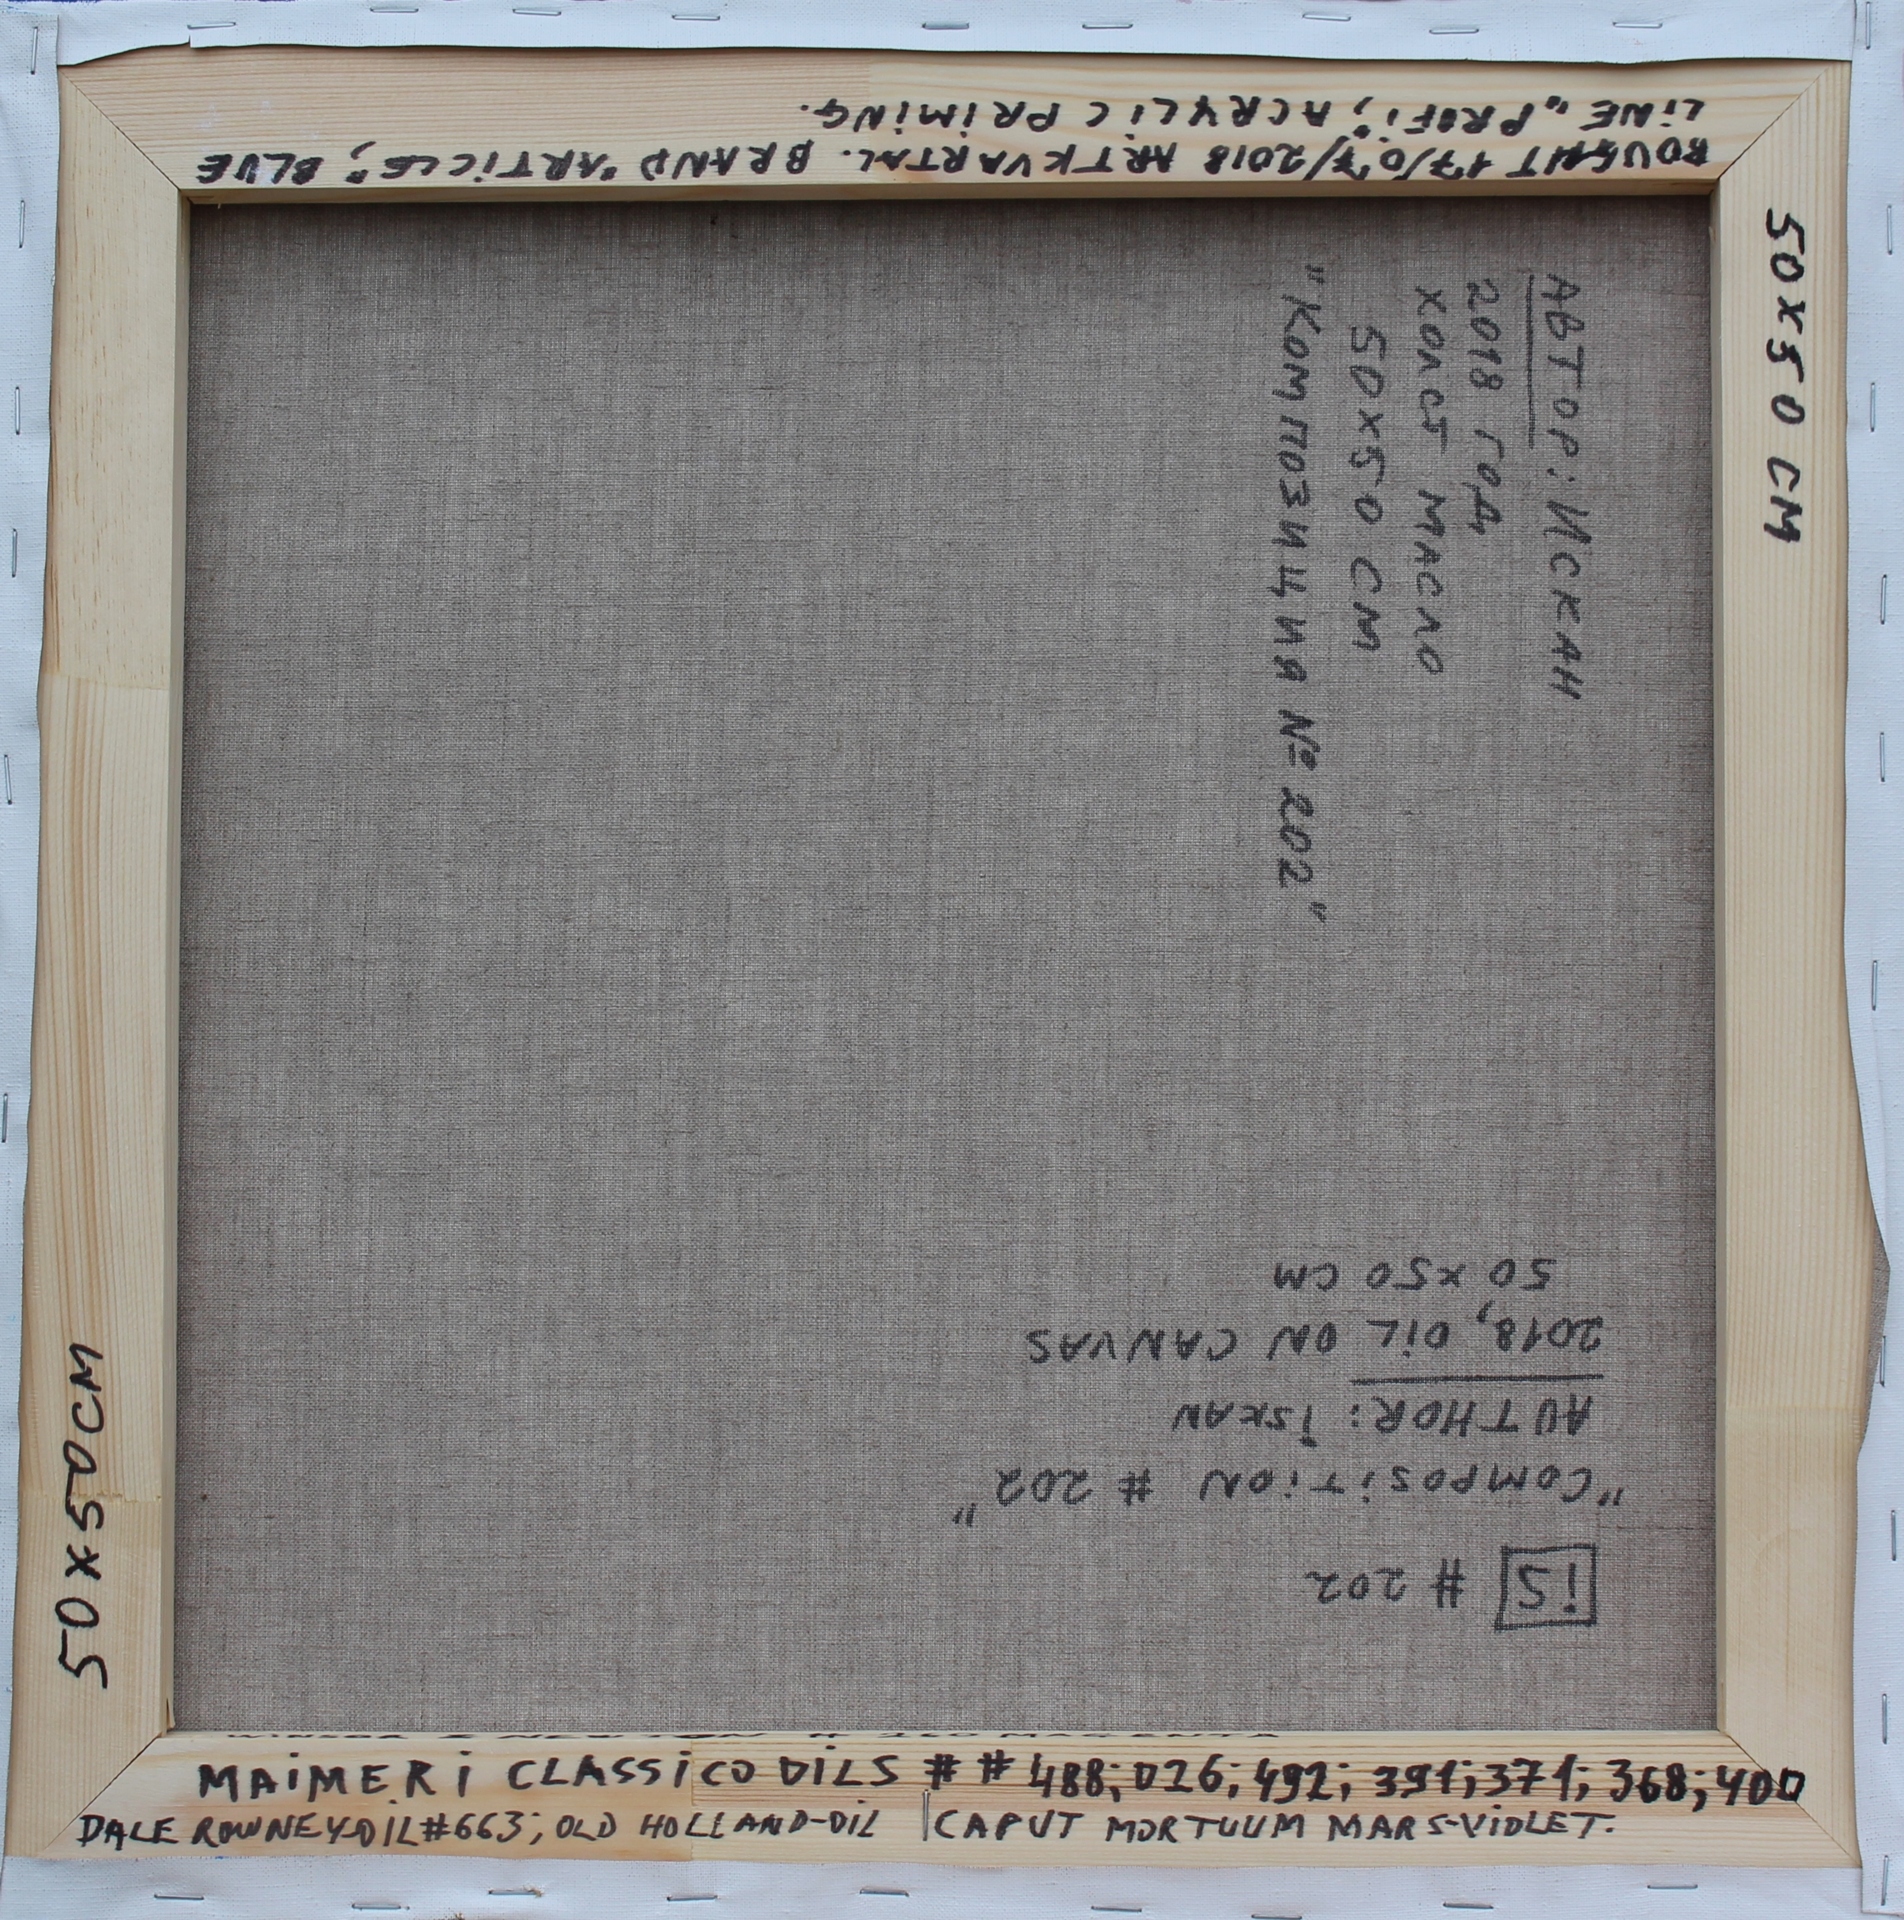 BOUGHT 17/07/2018 ARTKVARTAL. BRAND "ARTICLE", BLUE
LiNE „PROFi", ACRYLiC PRiMiNG.
50X50 CM
АВТОР: ИСКАН
2018 ГОД
ХОЛСТ МАСЛО
50X50 СМ
"КОМПОЗИЦИЯ № 202"
iS # 202
"COMPOSiTiON # 202"
AUTHOR: iSKAN
2018, OiL ON CANVAS
50 X50 CM
50X50CM
WINSOR & NEWTON # 380 MAGENTA
MAiMERi CLASSiCO OiLS # # 488; 026; 492; 391; 371; 368; 400
DALE ROWNEY-OiL #663; OLD HOLLAND-OiL | CAPUT MORTUUM MARS-ViOLET.